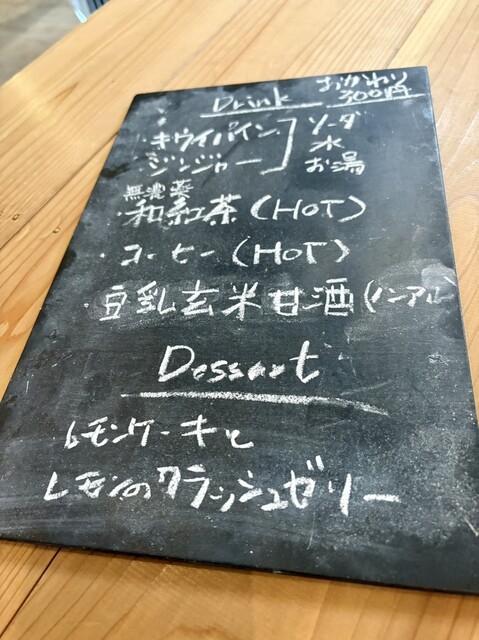 Drink おかわり
300円
・キウイパイン ソーダ
・ジンジャー 水
お湯
無農薬
・和紅茶(HOT)
・コーヒー(HOT)
・豆乳玄米甘酒(ノンアル
Dessert
レモンケーキと
レモンのクラッシュゼリー